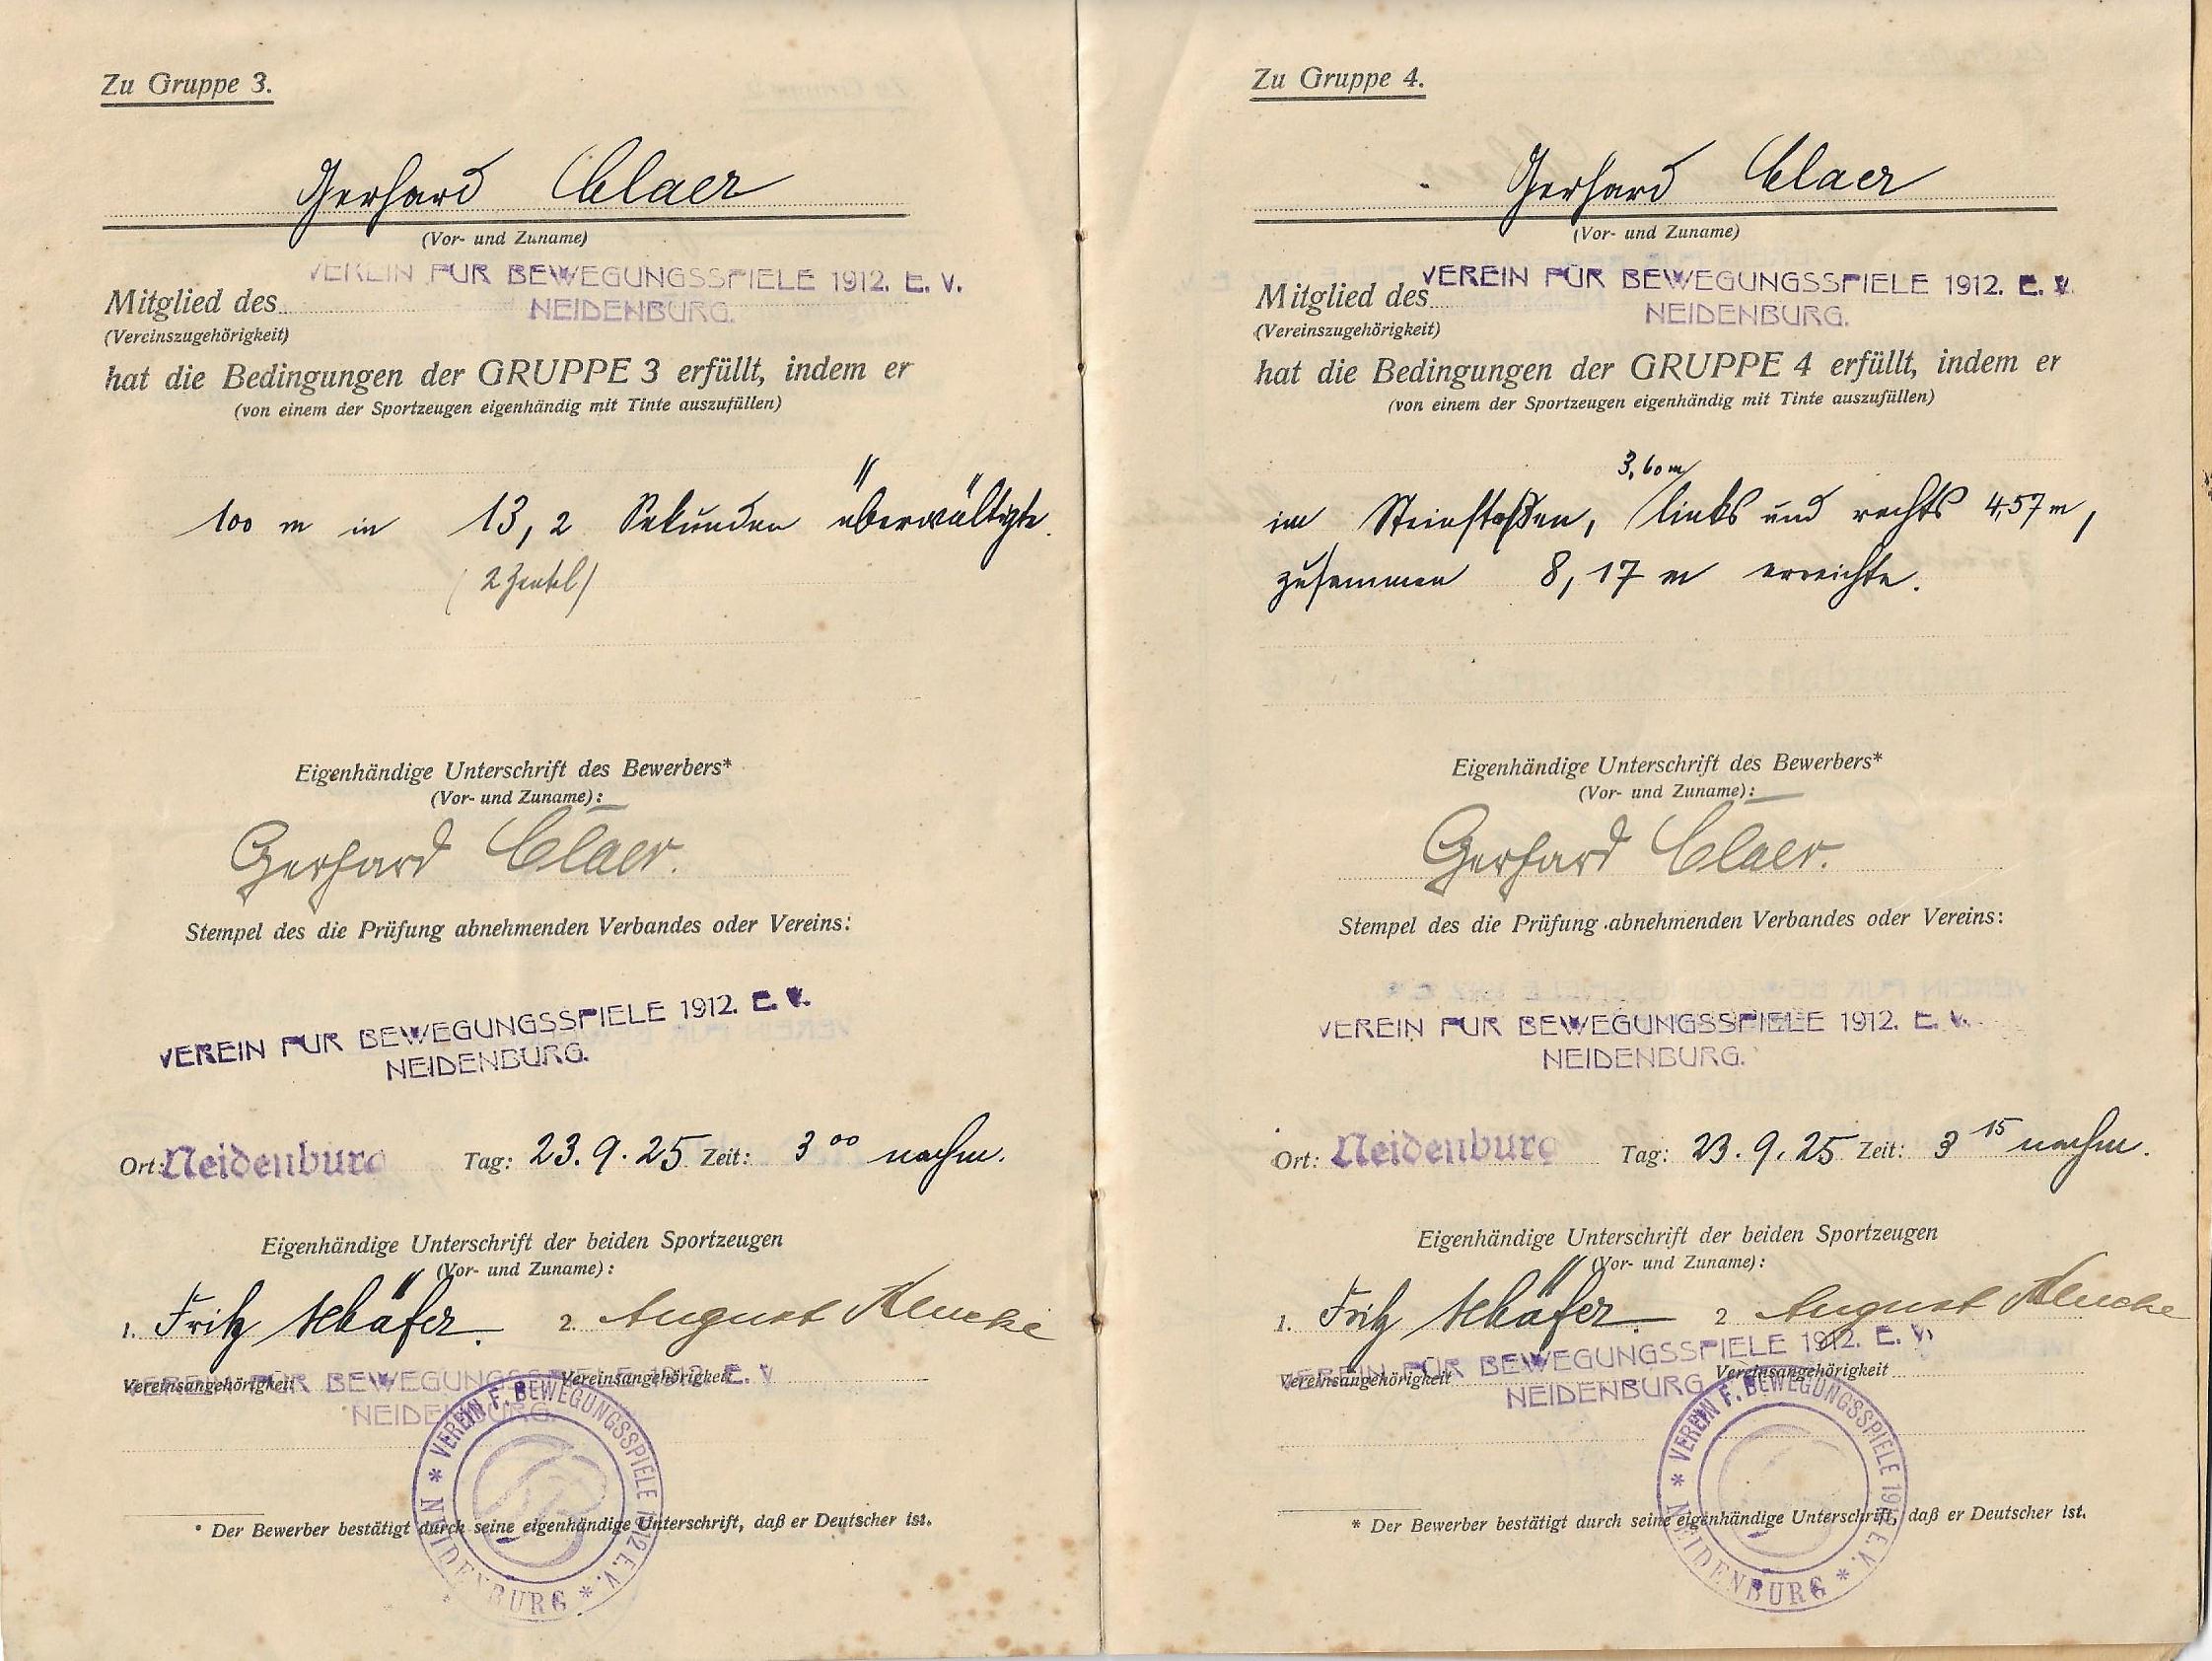 Zu Gruppe 3.
Gerhard Claer
(Vor- und Zuname)
VEREIN FUR BEWEGUNGSSPIELE 1912. E. V.
Mitglied des
NEIDENBURG.
(Vereinszugehörigkeit)
hat die Bedingungen der GRUPPE 3 erfüllt, indem er
(von einem der Sportzeugen eigenhändig mit Tinte auszufüllen)
100 m in 13,2 Sekunden überwältigte.
(2 Zentel)
Eigenhändige Unterschrift des Bewerbers*
(Vor- und Zuname):
Gerhard Claer.
Stempel des die Prüfung abnehmenden Verbandes oder Vereins:
VEREIN FUR BEWEGUNGSSPIELE 1912. E. V.
NEIDENBURG.
Ort: Neidenburg Tag: 23.9.25 Zeit: 3 00 nachm.
Eigenhändige Unterschrift der beiden Sportzeugen
(Vor- und Zuname):
1. Fritz Schäfer. 2. August
Vereinsangehörigkeit Vereinsangehörigkeit
VEREIN FUR BEWEGUNGSSPIELE 1912. E. V
NEIDENBURG.
* VEREIN F. BEWEGUNGSSPIELE 1912 E.V. * NEIDENBURG
* Der Bewerber bestätigt durch seine eigenhändige Unterschrift, daß er Deutscher ist.
Zu Gruppe 4.
Gerhard Claer
(Vor- und Zuname)
VEREIN FÜR BEWEGUNGSSPIELE 1912. E. V.
Mitglied des
NEIDENBURG.
(Vereinszugehörigkeit)
hat die Bedingungen der GRUPPE 4 erfüllt, indem er
(von einem der Sportzeugen eigenhändig mit Tinte auszufüllen)
3,60 m
im Steinstoßen, links und rechts 4,57 m,
zusammen 8,17 m erreichte.
Eigenhändige Unterschrift des Bewerbers*
(Vor- und Zuname):
Gerhard Claer.
Stempel des die Prüfung abnehmenden Verbandes oder Vereins:
VEREIN FUR BEWEGUNGSSPIELE 1912. E. V.
NEIDENBURG.
Ort: Neidenburg Tag: 23.9.25 Zeit: 3 15 nachm.
Eigenhändige Unterschrift der beiden Sportzeugen
(Vor- und Zuname):
1. Fritz Schäfer. 2 August
VEREIN FÜR BEWEGUNGSSPIELE 1912. E. V.
Vereinsangehörigkeit Vereinsangehörigkeit
NEIDENBURG
* VEREIN F. BEWEGUNGSSPIELE 1912 E.V. * NEIDENBURG
* Der Bewerber bestätigt durch seine eigenhändige Unterschrift, daß er Deutscher ist.